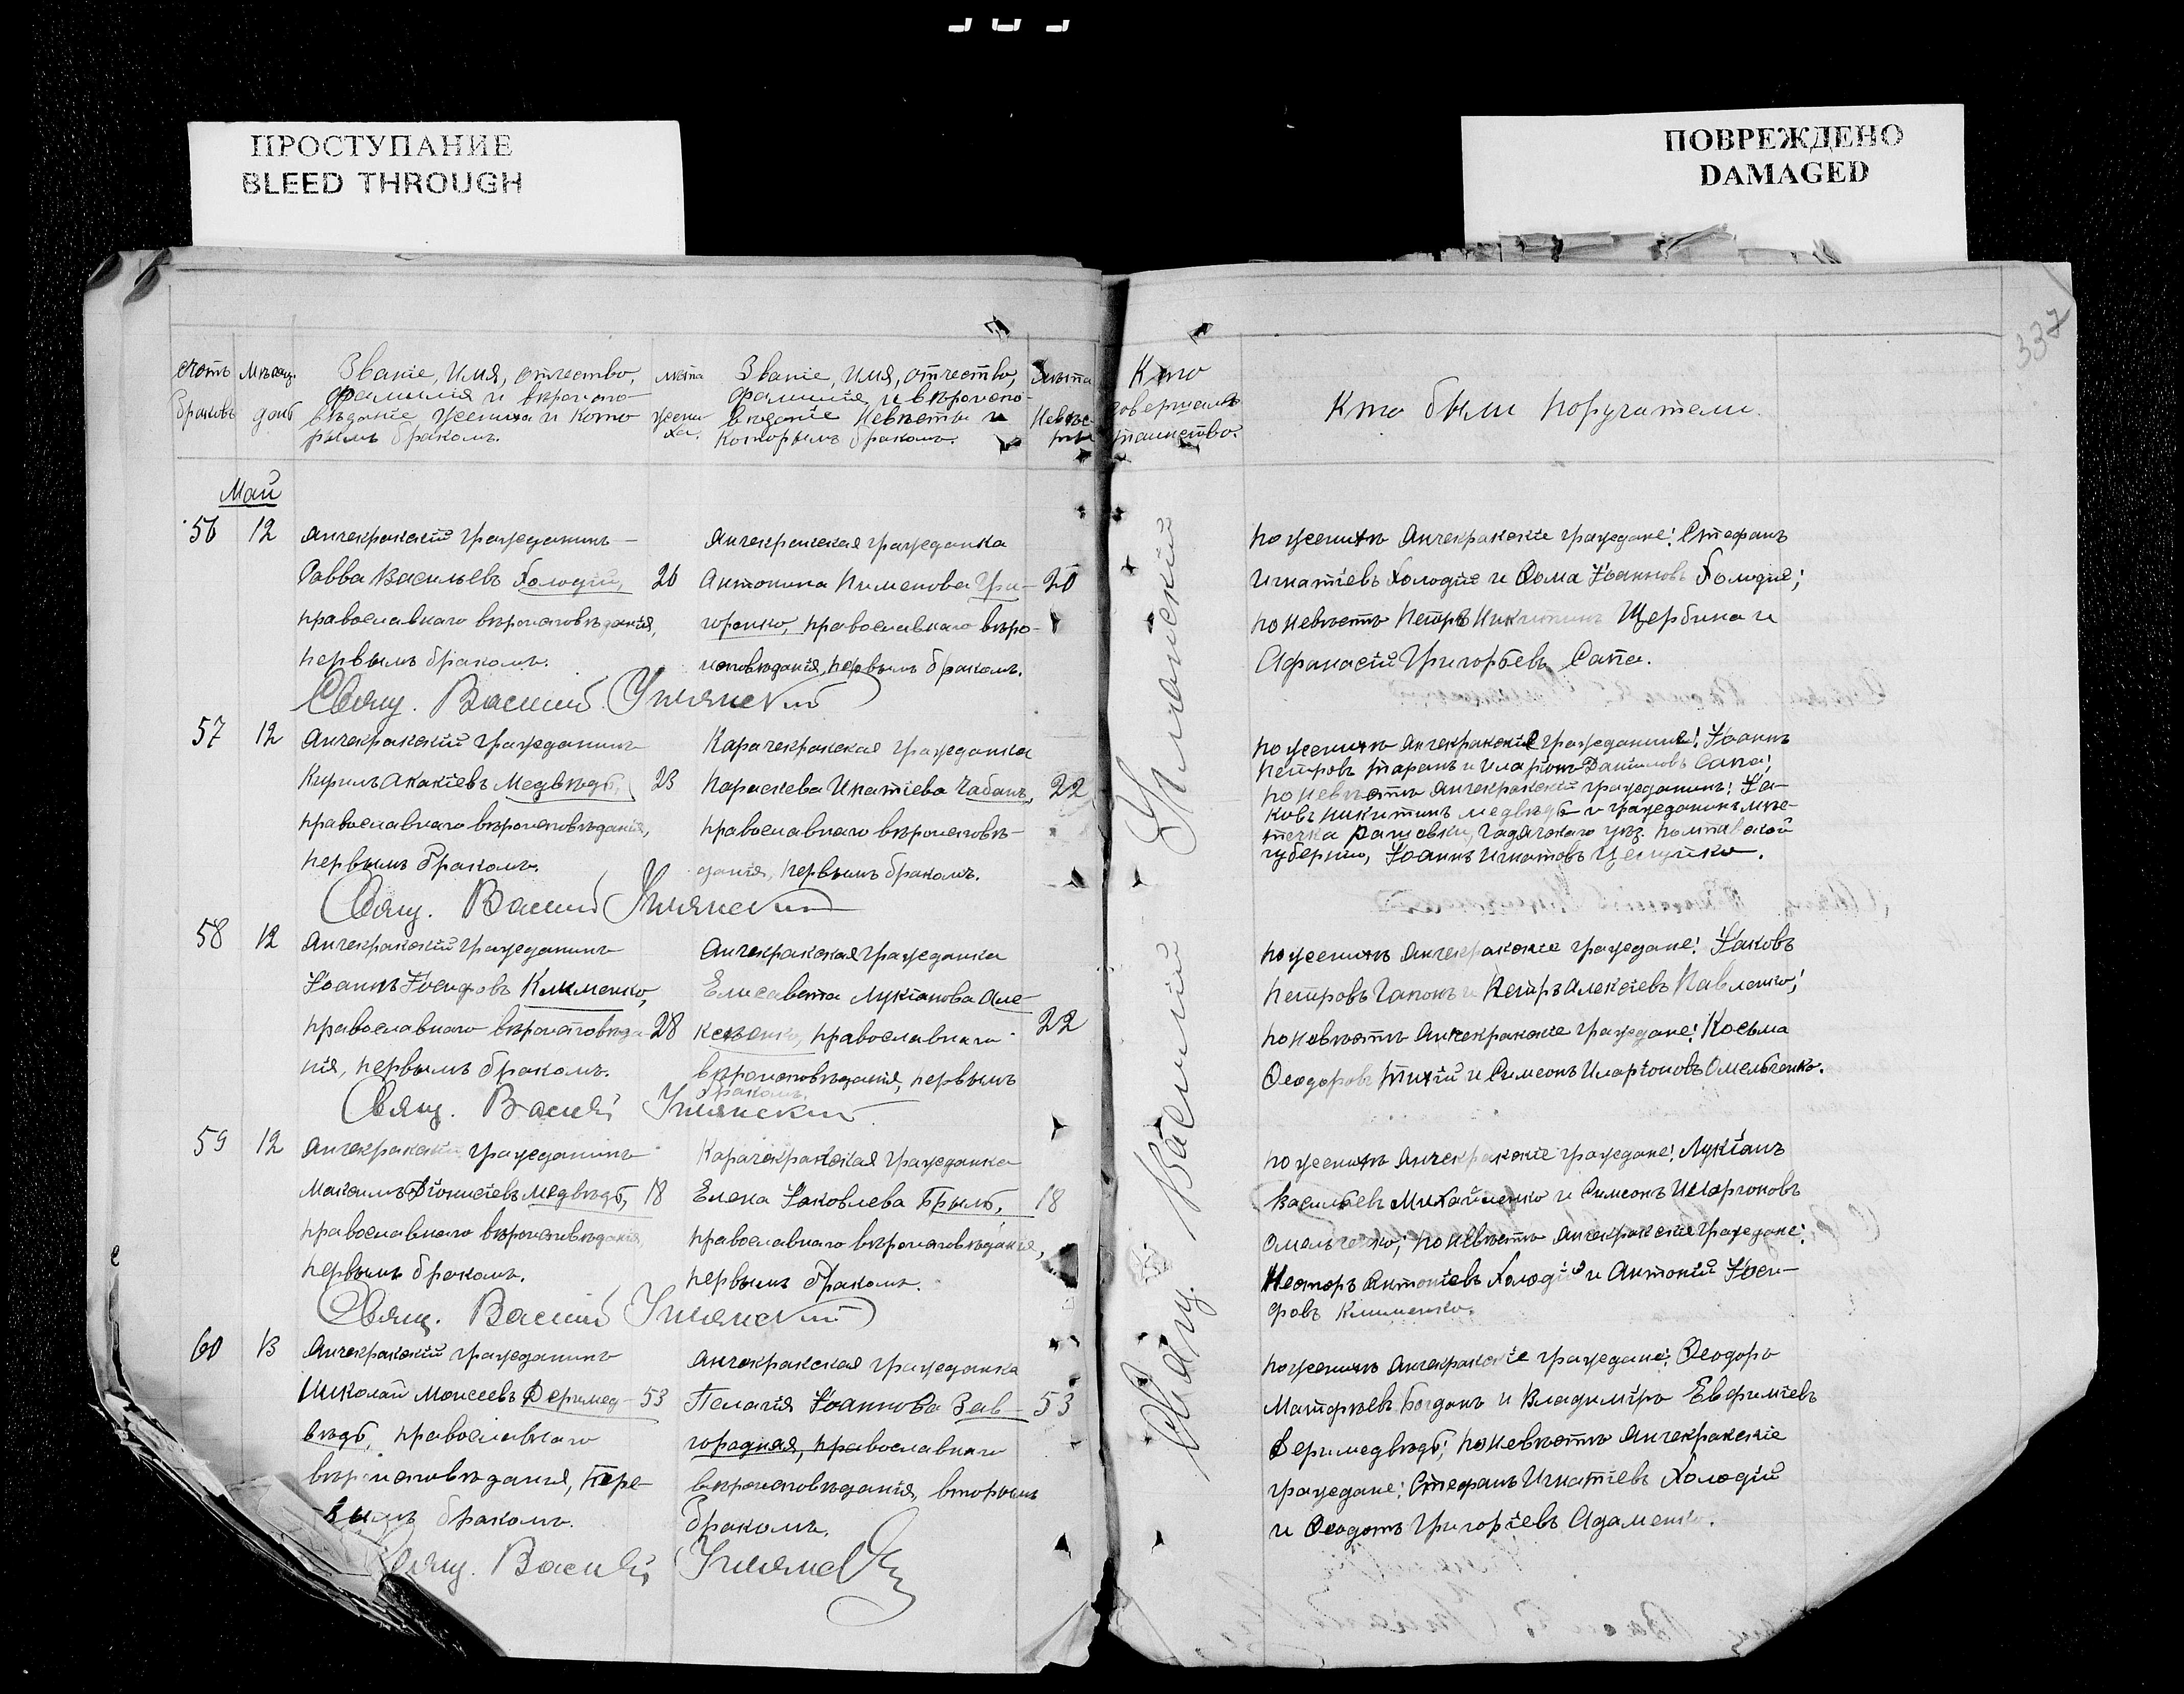 ПРОСТУПАНИЕ
BLEED THROUGH
ПОВРЕЖДЕНО
DAMAGED
337
счетъ
браковъ
Мѣсяц.
день
Званіе, имя, отчество,
фамилія и вѣроиспо-
вѣданіе жениха и кото
рымъ бракомъ.
лѣта
жени
ха.
Званіе, имя, отчество,
фамилія и вѣроиспо-
вѣданіе невѣсты и
которымъ бракомъ.
лѣта
невѣс-
ты
Кто
совершалъ
таинство.
Кто были поручатели.
Май
56 12
Анчекракскій гражданинъ
Савва Васильевъ Холодій, 26
православнаго вѣроисповѣданія,
первымъ бракомъ.
Анчекракская гражданка
Антонина Пименова Гри- 20
горенко, православнаго вѣро-
исповѣданія, первымъ бракомъ.
по женихѣ Анчекракскіе граждане: Стефанъ
Игнатіевъ Холодій и Ѳома Іоанновъ Холодій;
по невѣстѣ Петръ Никитинъ Щербина и
Афанасій Григорьевъ Сапа.
Свящ. Василій
57 12
Анчекракскій гражданинъ
Кирилъ Акакіевъ Медвѣдь, 23
православнаго вѣроисповѣданія,
первымъ бракомъ.
Карачекракская гражданка
Параскева Игнатіева Чабанъ, 22
православнаго вѣроисповѣ-
данія, первымъ бракомъ.
по женихѣ Анчекракскіе граждане: Іоаннъ
Петровъ Таранъ и Иларіонъ Даниловъ Сапа;
по невѣстѣ Анчекракскій гражданинъ: Іа-
ковъ Никитинъ Медвѣдь и гражданинъ мѣс-
течка Рашовки, Гадячскаго уѣз. Полтавской
губерніи, Іоаннъ Игнатовъ
Свящ. Василій
58 12
Анчекракскій гражданинъ
Іоаннъ Іосифовъ Клименко,
православнаго вѣроисповѣда 28
нія, первымъ бракомъ.
Анчекракская гражданка
Елисавета Лукіанова Але-
ксѣенко, православнаго 22
вѣроисповѣданія, первымъ
бракомъ.
по женихѣ Анчекракскіе граждане: Іаковъ
Петровъ Гапонъ и Петръ Алексіевъ Павленко;
по невѣстѣ Анчекракскіе граждане: Косьма
Ѳеодоровъ Тихій и Симеонъ Иларіоновъ Омельченко.
Свящ. Василій
59 12
Анчекракскій гражданинъ
Максимъ Діонисіевъ Медвѣдь, 18
православнаго вѣроисповѣданія,
первымъ бракомъ.
Карачекракская гражданка
Елена Іаковлева Брыль, 18
православнаго вѣроисповѣданія,
первымъ бракомъ.
по женихѣ Анчекракскіе граждане: Лукіанъ
Васильевъ Михайленко и Симеонъ Иларіоновъ
Омельченко; по невѣстѣ Анчекракскіе граждане:
Несторъ Антоніевъ Холодій и Антоній Іоси-
фовъ Клименко.
Свящ. Василій
60 13
Анчекракскій гражданинъ
Николай Моисеевъ Деримед- 53
вѣдь, православнаго
вѣроисповѣданія, пер-
вымъ бракомъ.
Анчекракская гражданка
Пелагія Іоаннова Зав- 53
городняя, православнаго
вѣроисповѣданія, вторымъ
бракомъ.
по женихѣ Анчекракскіе граждане: Ѳеодоръ
Матфѣевъ Богданъ и Владиміръ Евфиміевъ
Деримедвѣдь; по невѣстѣ Анчекракскіе
граждане: Стефанъ Игнатіевъ Холодій
и Ѳеодотъ Григоріевъ Адаменко.
Свящ. Василій
Свящ. Василій